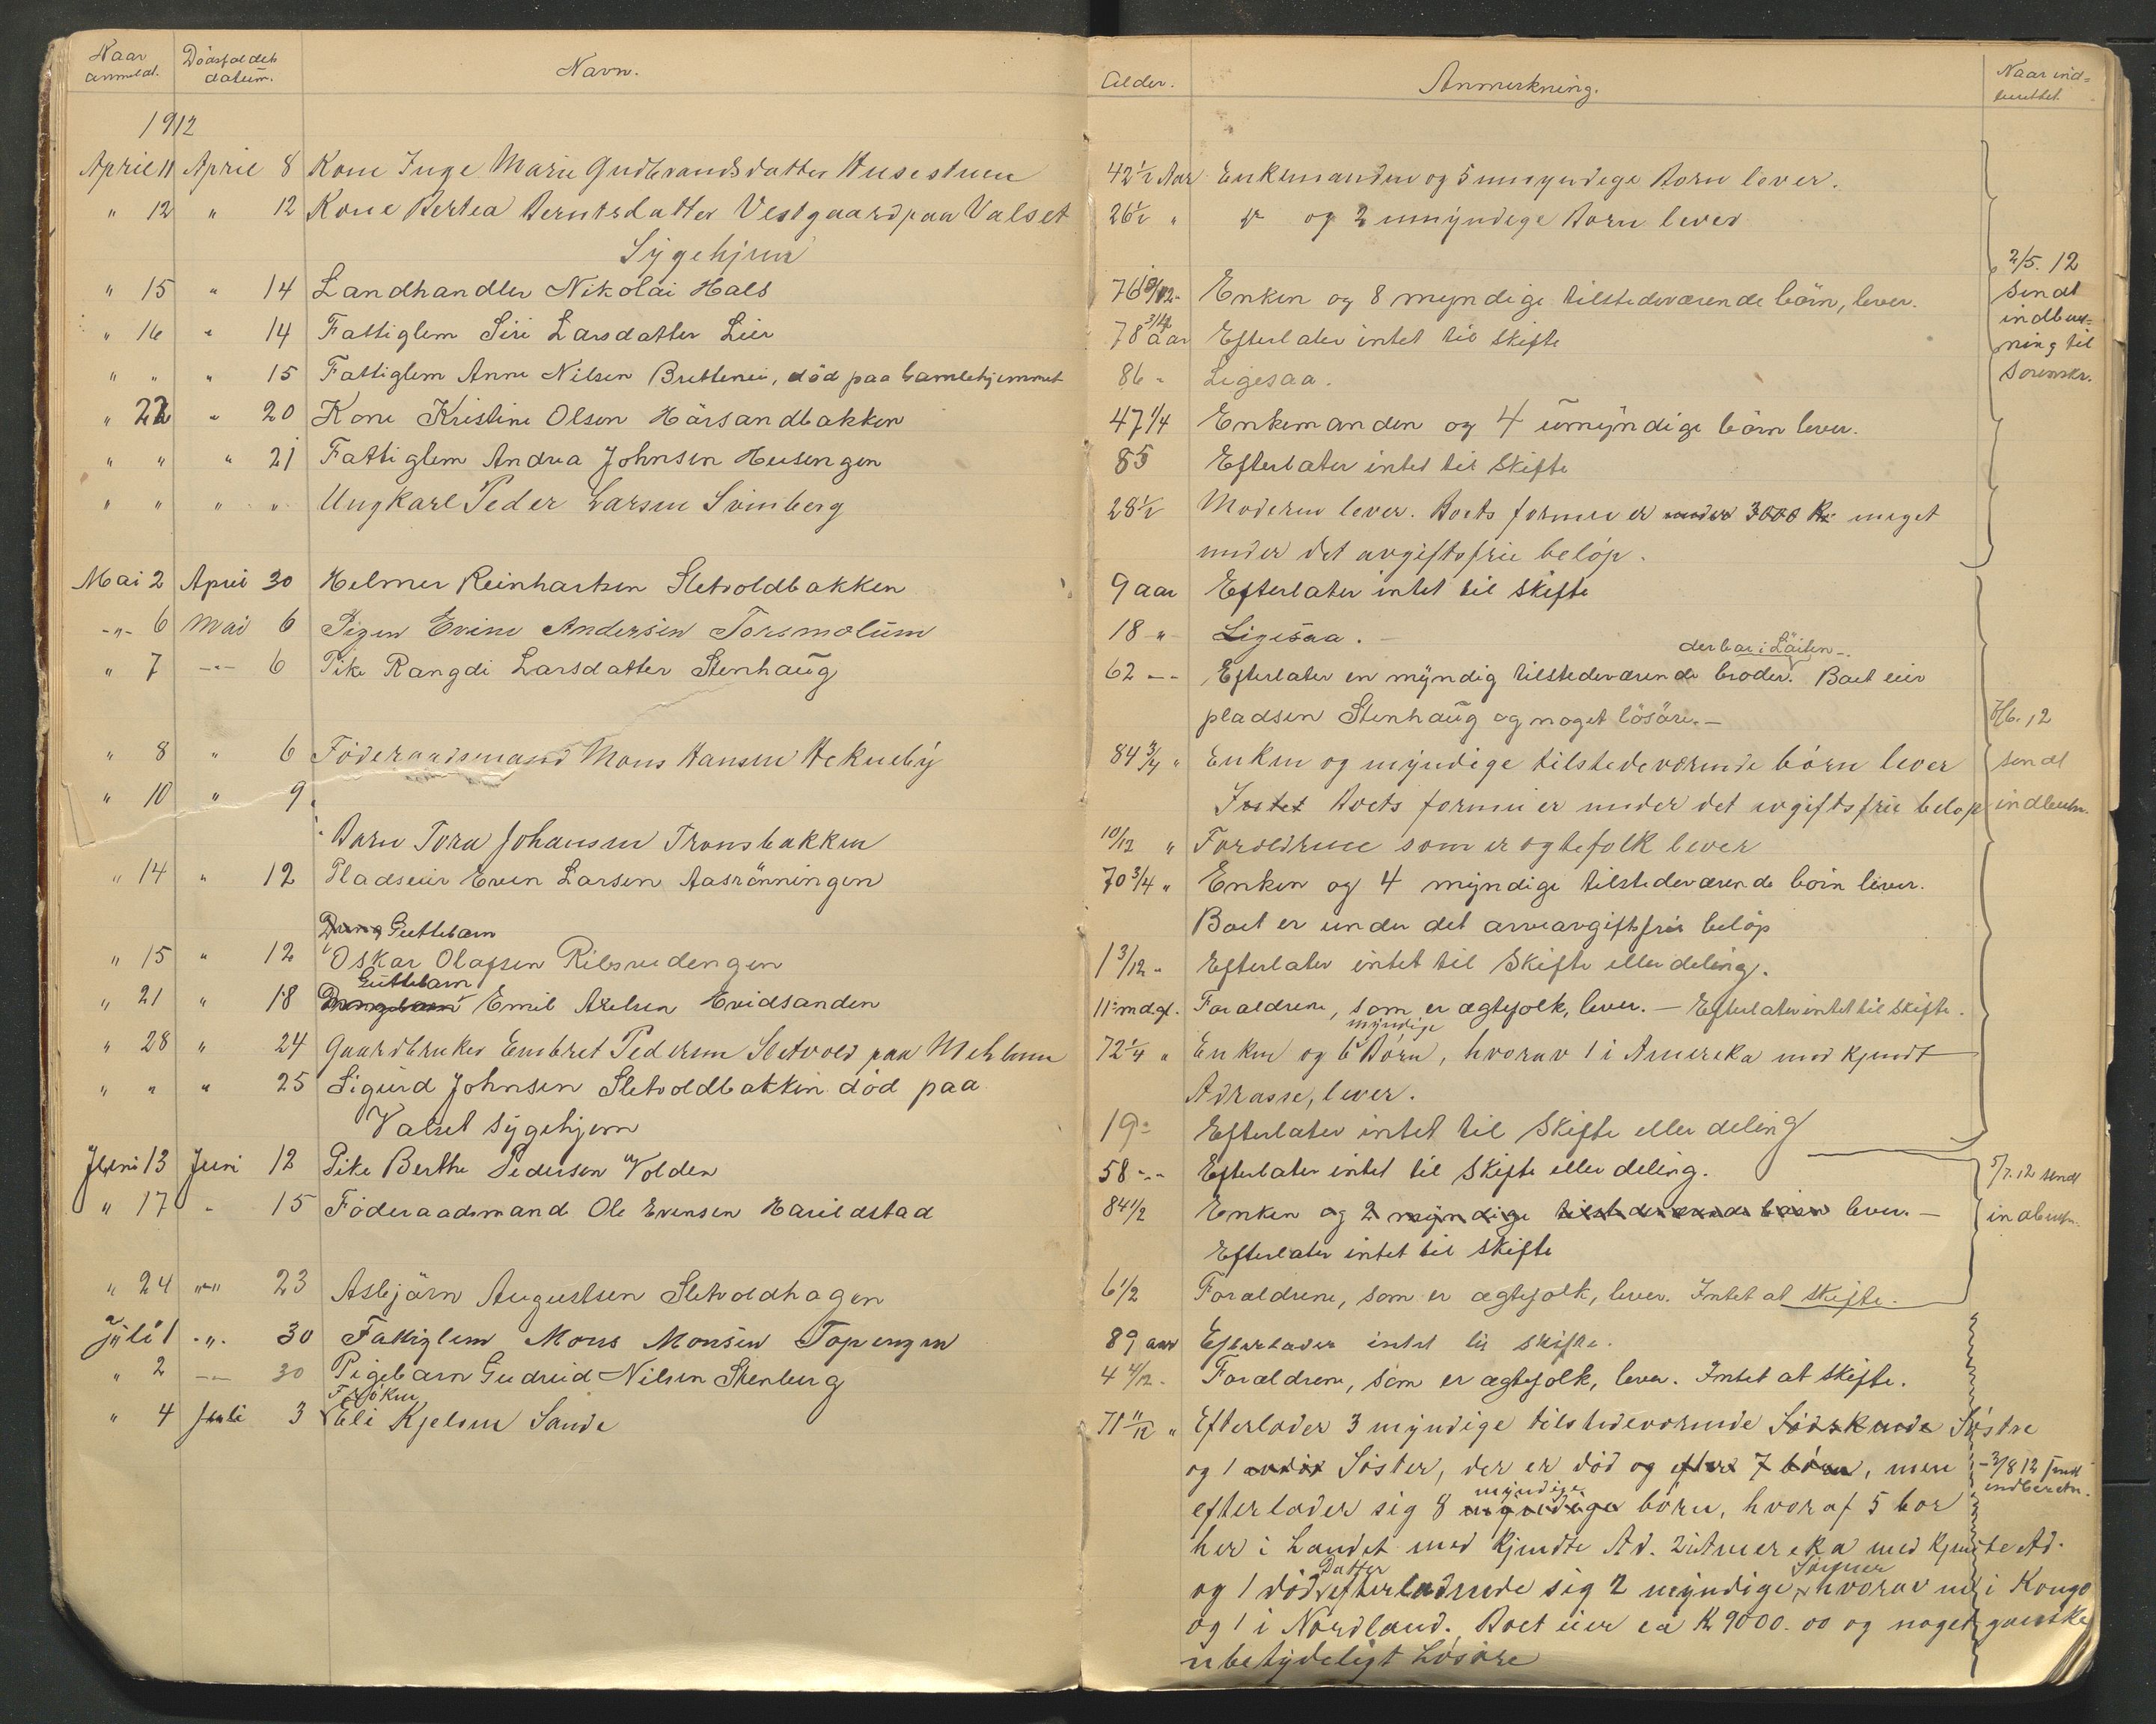 Naar anmeldt. Dödsfaldets datum. Navn. Alder. Anmerkning. Naar ind=
1912
April 11 April 8 Kone Inge Marie Gudbrandsdatter Husestuen 42 1/2 Aar Enkemanden og 5 umyndige Børn lever.
" 12 " 12 Kone Bertea Berntsdatter Vestgaard paa Valset 26 1/2 " " og 2 umyndige Børn lever
Sygehjem
2/5. 12
" 15 " 14 Landhandler Nikolai Hals 76 Enken og 8 myndige tilstedeværende börn, lever. Sendt
" 16 " 14 Fattiglem Siri Larsdatter Lier 78 3/4 aar Efterlater intet til skifte indberet=
ning til
" " " 15 Fattiglem Anne Nilsen Brettenei, död paa Gamlehjemmet 86 " Ligesaa. Sorenskr.
" 22 " 20 Kone Kristine Olsen Hårsandbakken 47 1/4 Enkemanden og 4 umyndige börn lever.
" " " 21 Fattiglem Andrea Johnsen Heisengen 85 Efterlater intet til skifte
" " " " Ungkarl Peder Larsen Svinberg 28 1/2 Moderen lever. Boets formue er under 3000 Kr meget
under det avgiftsfrie beløp.
Mai 2 April 30 Helmer Reinhartsen Sletvoldbakken 9 aar Efterlater intet til skifte
-"- 6 Mai 6 Pigen Evine Andersen Torsmolum 18 " Ligesaa. -
der bor i Löiten -
" 7 -"- 6 Pike Rangdi Larsdatter Stenhaug 62 -"- Efterlater en myndig tilstedeværende broder. Boet eier
pladsen Stenhaug og noget lösöre. - 7/6. 12
" 8 " 6 Föderaadsmand Mons Hansen Hekneby 84 3/4 " Enken og myndige tilstedeværende børn lever sendt
" 10 " 9 Intet Boets formue er under det avgiftsfrie beløp indberetn.
Barn Tora Johansen Tronsbakken 10/12 " Foreldrene som er egtefolk lever
" 14 " 12 Pladseier Even Larsen Aasrönningen 70 3/4 " Enken og 4 myndige tilstedeværende börn lever.
Boet er under det arveavgiftsfrie belöp
Dreng Guttebarn
" 15 " 12 Oskar Olafsen Ribsrudengen 1 3/12 " Efterlater intet til Skifte eller deling.
Guttebarn
" 21 " 18 Drengebarn Emil Axelsen Evidsanden 11 mdg. Forældrene, som er ægtefolk, lever. - Efterlater intet til skifte.
myndige
" 28 " 24 Gaardbruker Embret Pedersen Sletvold paa Mehlum 72 1/4 " Enken og 6 Børn, hvorav 1 i Amereka med kjendt
" " " 25 Sigurd Johnsen Sletvoldbakken död paa Adrasse, lever.
Valset sygehjem 19 " Efterlater intet til Skifte eller deling
Juni 13 Juni 12 Pike Berthe Pedersen Volden 58 -"- Efterlater intet til Skifte eller deling. 5/7. 12 sendt
" 17 " 15 Föderaadsmand Ole Evensen Harildstad 84 1/2 Enken og 2 myndige tilstedeværende börn lever. - indberetn.
Efterlater intet til skifte
" 24 -"- 23 Asbjörn Augustsen Sletvoldhagen 6 1/2 Forældrene, som er ægtefolk, lever. Intet at skifte.
Juli 1 -"- 30 Fattiglem Mons Monsen Topengen 89 aar Efterlader intet til skifte.
" 2 -"- 30 Pigebarn Gudrid Nilsen Stenberg 4 4/12 - Forældrene, som er ægtefolk, lever. Intet at skifte.
Frøken
" 4 Juli 3 Eli Kjelsen Sande 71 11/12 " Efterlader 3 myndige tilstedeværende Sødskende Søstre
og 1 Søster, der er død og efter 7 børn, men - 3/8 12 sendt
myndige indberetn.
efterlader sig 8 myndige børn, hvoraf 5 bor
her i Landet med kjendte Ad. 2 i Amereka med kjendte Ad.
Datter Sønner
og 1 død efterladende sig 2 myndige, hvorav en i Kongo
og 1 i Nordland. Boet eier ca Kr 9000.00 og noget ganske
ubetydeligt Løsøre